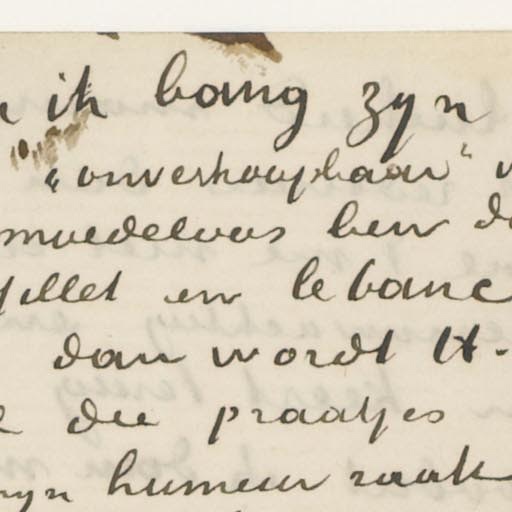 ik bang zyn
"onverkoopbaar"
moedeloos ben
en le banc
dan wordt H.
die praatjes
myn humeur raak